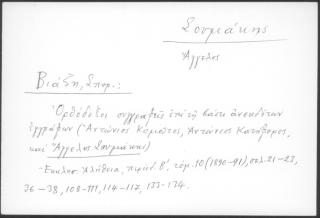 Σουμάκης
Ἄγγελος
Βιάζη, Σπυρ.:
Ὀρθόδοξοι συγγραφεῖς ἐπὶ τῇ βάσει ἀνεκδότων
ἐγγράφων (Ἀντώνιος Κομιῶτος, Ἀντώνιος Κατήφορος,
καὶ Ἄγγελος Σουμάκης)
- Ἐκκλησ. Ἀλήθεια, περίοδ. Β΄, τόμ. 10 (1890-91), σελ. 21-23,
36-38, 108-111, 114-117, 133-134.